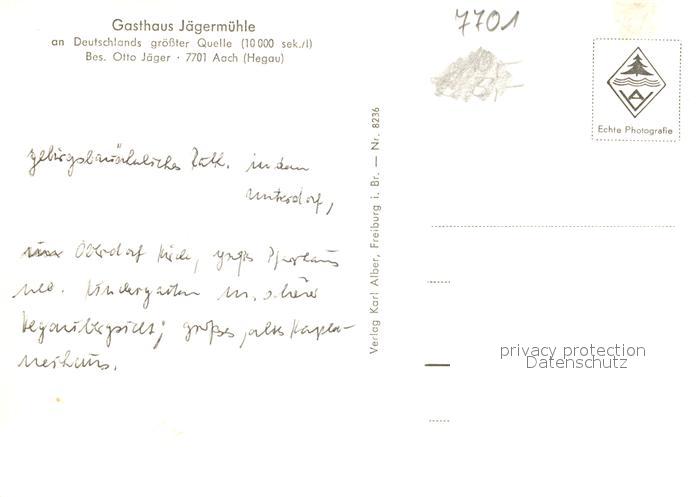 Gasthaus Jägermühle
an Deutschlands größter Quelle (10 000 sek./l)
Bes. Otto Jäger · 7701 Aach (Hegau)
7701
Echte Photografie
in dem
Unterdorf,
Oberdorf Kirche, großes Pfarrhaus
Kindergarten m. schöner
Hegaubergsicht; großes, altes Kapla-
neihaus.
Verlag Karl Alber, Freiburg i. Br. — Nr. 8236
privacy protection
Datenschutz